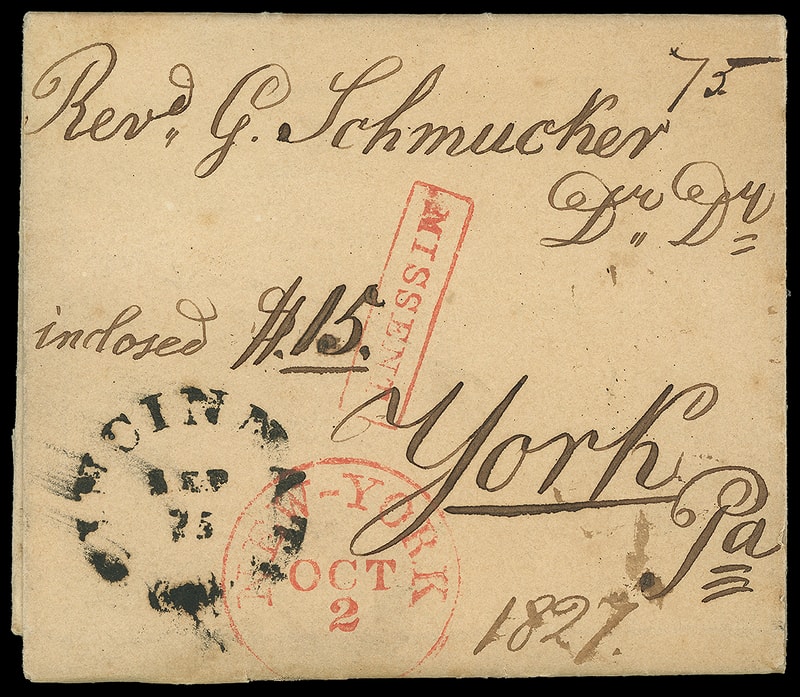 75
Revd. G. Schmucker
Dr. Dr
MISSENT
inclosed $.15.
York
Pa
CINCINNATI
SEP
25
NEW-YORK
OCT
2
1827.